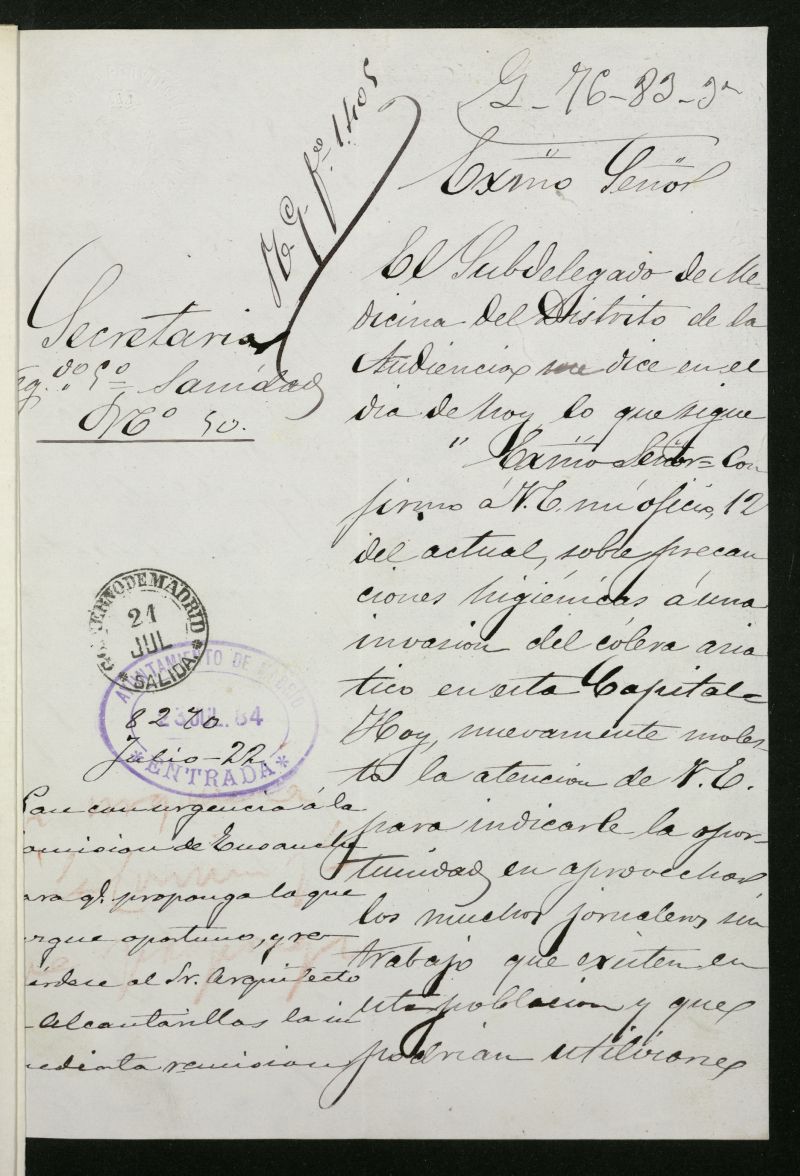 G-76-83-3ª
Exmo Señor
R. G. fº 1.405
Secretaria
Neg.do 5º Sanidad
Nº 50.
El Subdelegado de Me-
dicina del Distrito de la
Audiencia me dice en el
dia de hoy lo que sigue
" Exmo Señor = Con
firmo á V.E. mi oficio, 12
del actual, sobre precau
ciones higiénicas á una
invasion del cólera asia
tico en esta Capital =
Hoy, nuevamente moles
to la atencion de V.E.
para indicarle la opor-
tunidad en aprovechar
los muchos jornaleros sin
trabajo que existen en
esta poblacion y que
podrian utilizarse
GOBIERNO DE MADRID
21
JUL
SALIDA
AYUNTAMIENTO DE MADRID
23 JUL. 84
ENTRADA
8270
Julio-22
Pase con urgencia á la
comision de Ensanche
para q.e proponga lo que
juzgue oportuno, y re
cuérdese al Sr. Arquitecto
Alcantarillas la in
mediata remision